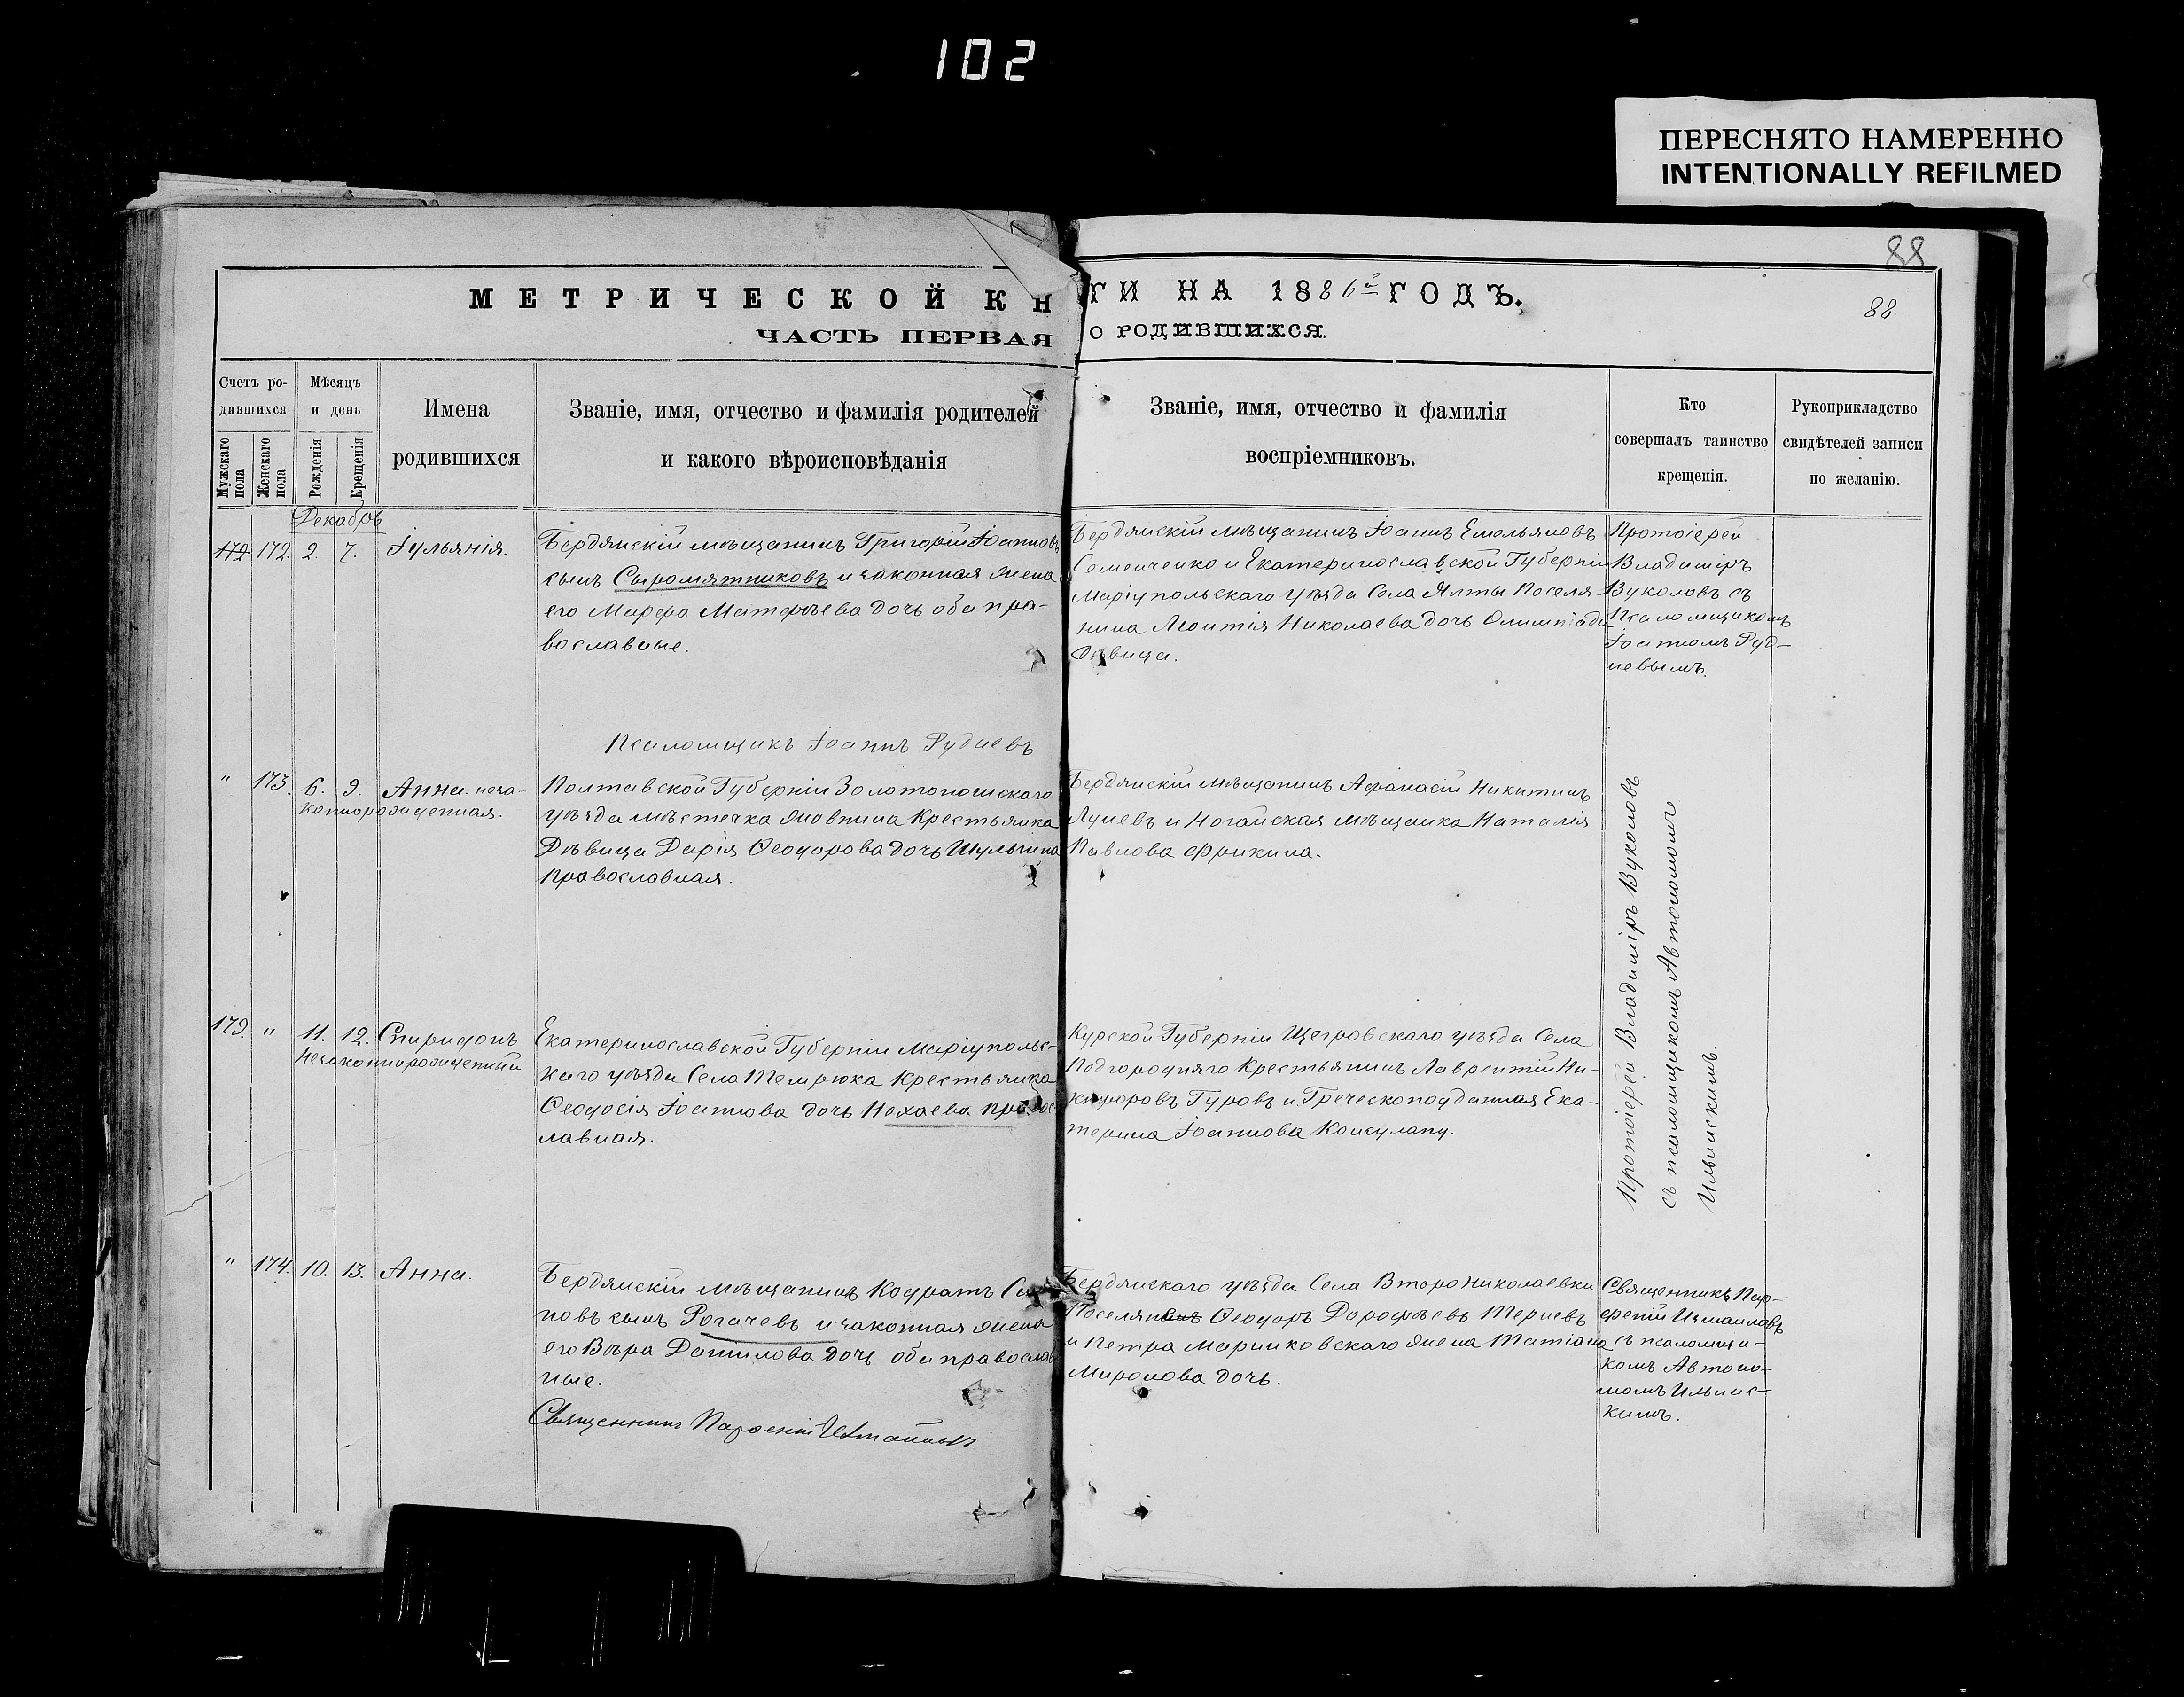 102
ПЕРЕСНЯТО НАМЕРЕННО
INTENTIONALLY REFILMED
88
88
МЕТРИЧЕСКОЙ КН ГИ НА 1886й ГОДЪ.
ЧАСТЬ ПЕРВАЯ О РОДИВШИХСЯ.
Счетъ ро-
дившихся
Мужскаго пола
Женскаго пола
Мѣсяцъ
и день
Рожденія
Крещенія
Имена
родившихся
Званіе, имя, отчество и фамилія родителей
и какого вѣроисповѣданія
Званіе, имя, отчество и фамилія
воспріемниковъ.
Кто
совершалъ таинство
крещенія.
Рукоприкладство
свидѣтелей записи
по желанію.
Декабрь
172 172. 2. 7. Іульянія.
Бердянскій мѣщанинъ Григорій Іоанновъ
сынъ Сыромятниковъ и законная жена
его Марфа Матфѣева дочь оба пра-
вославные.
Бердянскій мѣщанинъ Іоаннъ Емельяновъ
Семенченко и Екатеринославской Губерніи
Маріупольскаго уѣзда Села Ялты Поселя-
нина Леонтія Николаева дочь Олимпіада
Дѣвица.
Протоіерей
Владиміръ
Вуколовъ съ
Псаломщикомъ
Іоанномъ Руд-
невымъ.
Псаломщикъ Іоаннъ Рудневъ
" 173. 6. 9. Анна. неза-
коннорожденная.
Полтавской Губерніи Золотоношскаго
уѣзда мѣстечка Яовнина Крестьянка
Дѣвица Дарія Ѳеодорова дочь Шульгина
Православная.
Бердянскій мѣщанинъ Афанасій Никитинъ
Луневъ и Ногайская мѣщанка Наталія
Павлова Фрикина.
Протоіерей Владиміръ Вуколовъ
съ псаломщикомъ Автономомъ
Ильинскимъ.
179. " 11. 12. Спиридонъ
Незаконнорожденный
Екатеринославской Губерніи Маріупольс-
каго уѣзда Села Темрюка Крестьянка
Ѳеодосія Іоаннова дочь Нехаева правос-
лавная.
Курской Губерніи Щегровскаго уѣзда Села
Подгороднаго Крестьянинъ Лаврентій Ни-
кифоровъ Гуровъ и Греческоподданная Ека-
терина Іоаннова Консулану.
" 174. 10. 13. Анна.
Бердянскій мѣщанинъ Кодратъ
новъ сынъ Рогачевъ и законная жена
его Вѣра Данилова дочь оба православ
ные.
Бердянскаго уѣзда Села Второниколаевки
Поселянинъ Ѳеодоръ Дорофѣевъ Терневъ
и Петра Маринковскаго жена Татіана
Миронова дочь.
Священникъ Пар-
феній Измаиловъ
съ псаломщи-
комъ Автоно-
момъ Ильинс-
кимъ.
Священникъ Парфеній Измаиловъ